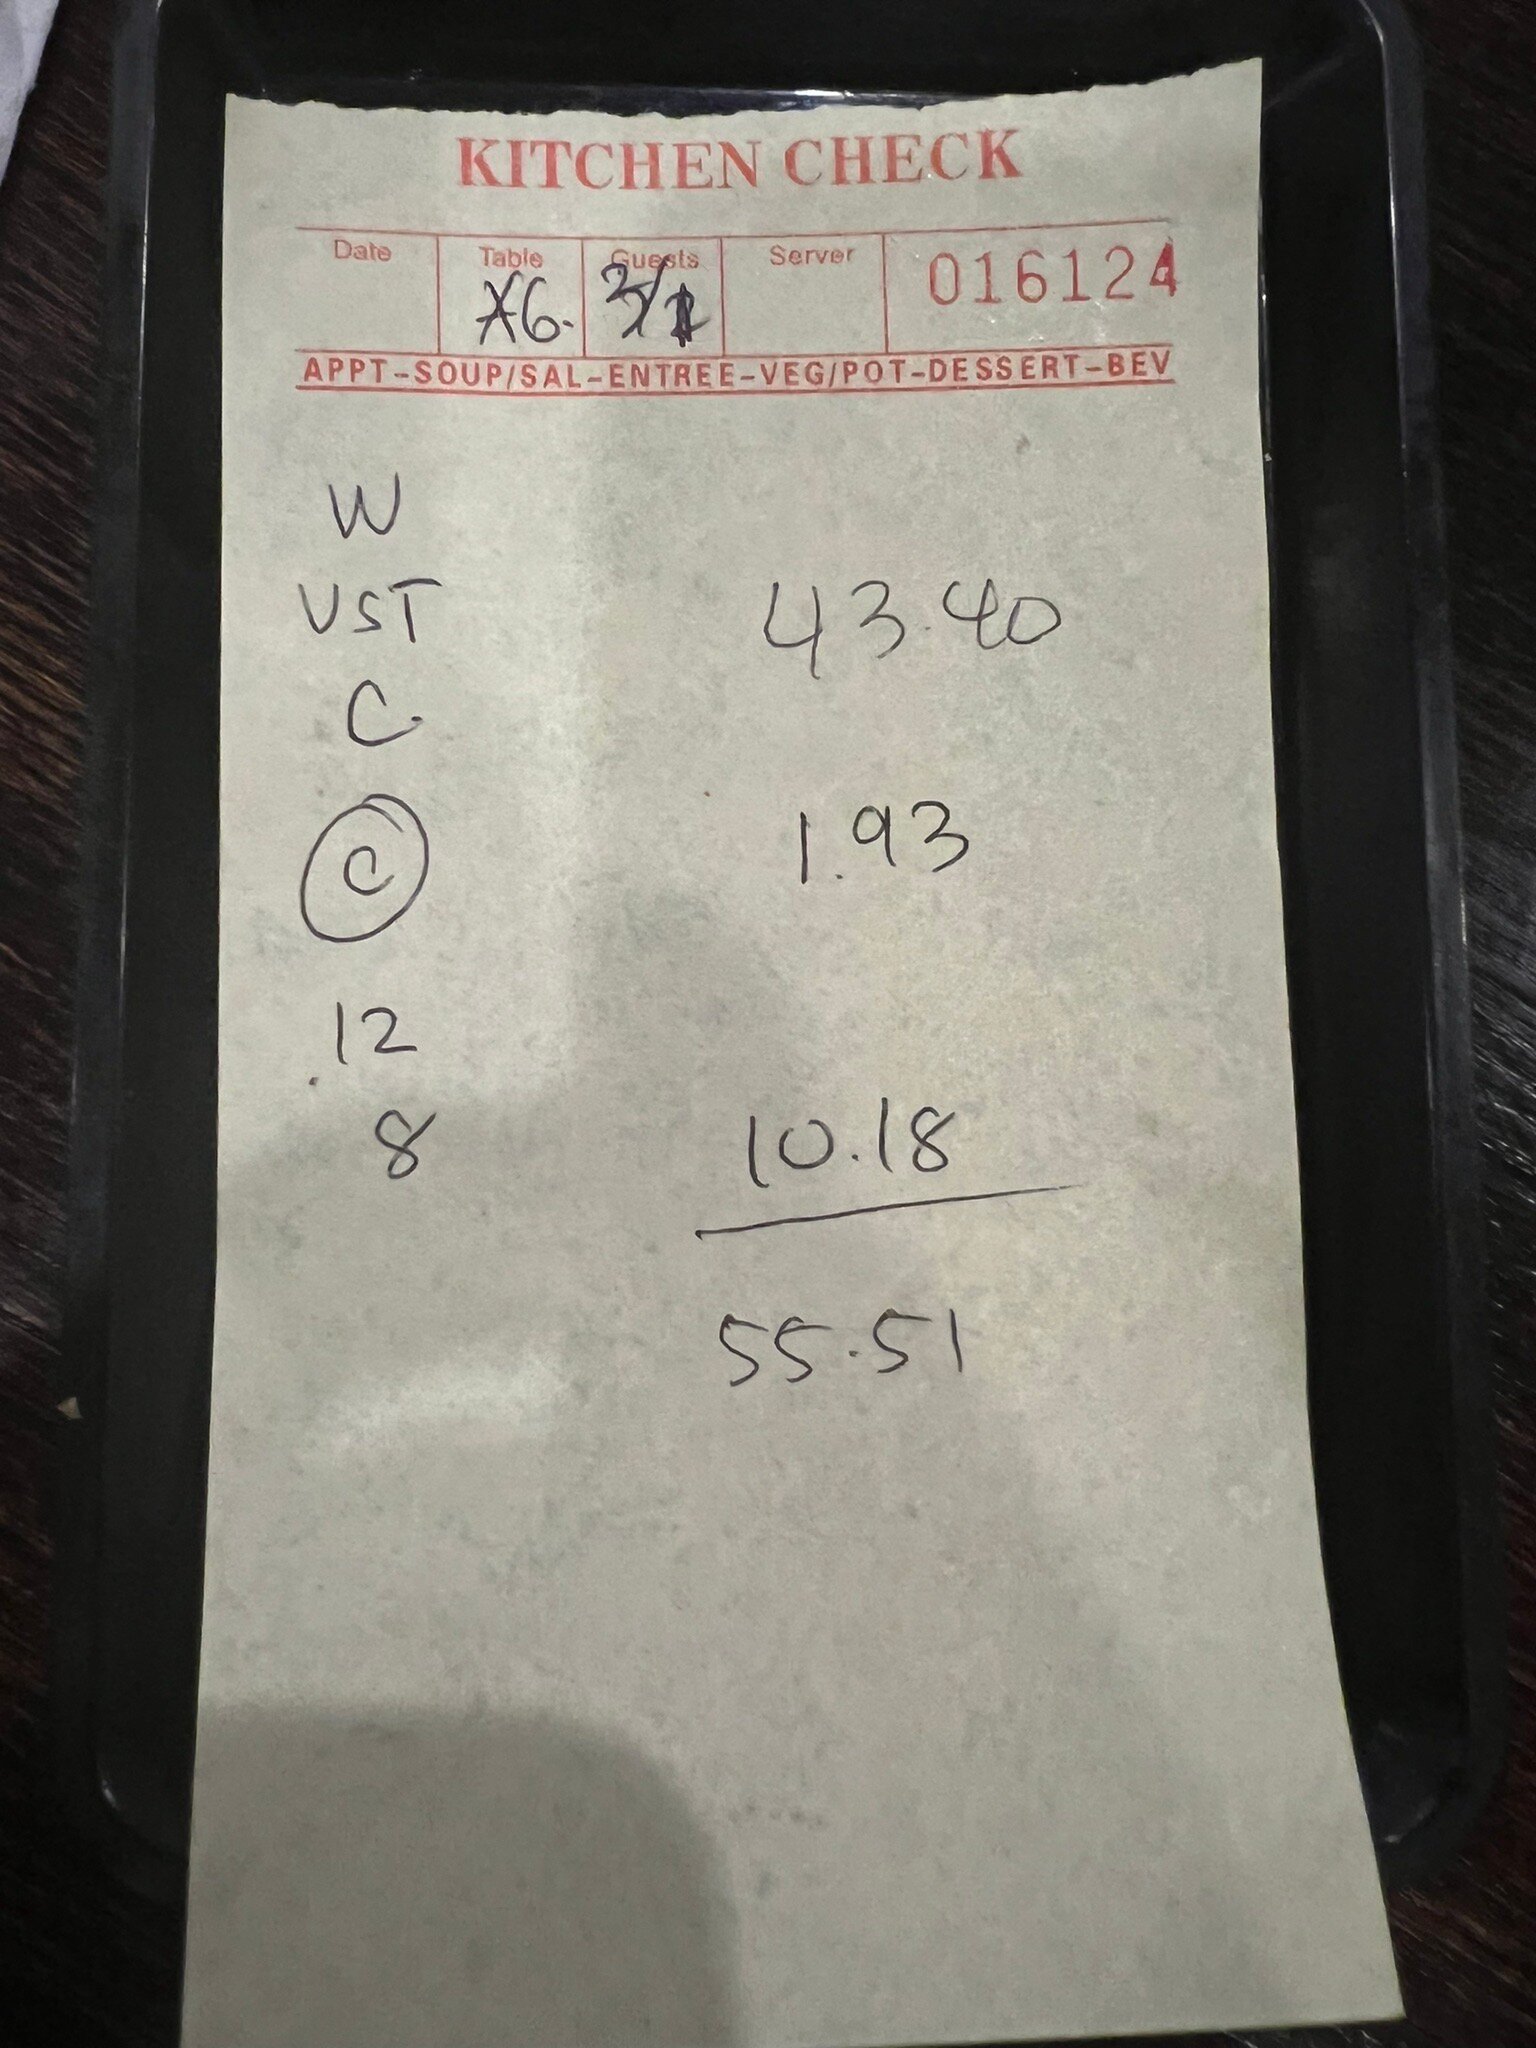 KITCHEN CHECK
Date Table Guests Server 016124
APPT-SOUP/SAL-ENTREE-VEG/POT-DESSERT-BEV
W
VST 43.40
C
C 1.93
12
8 10.18
55.51